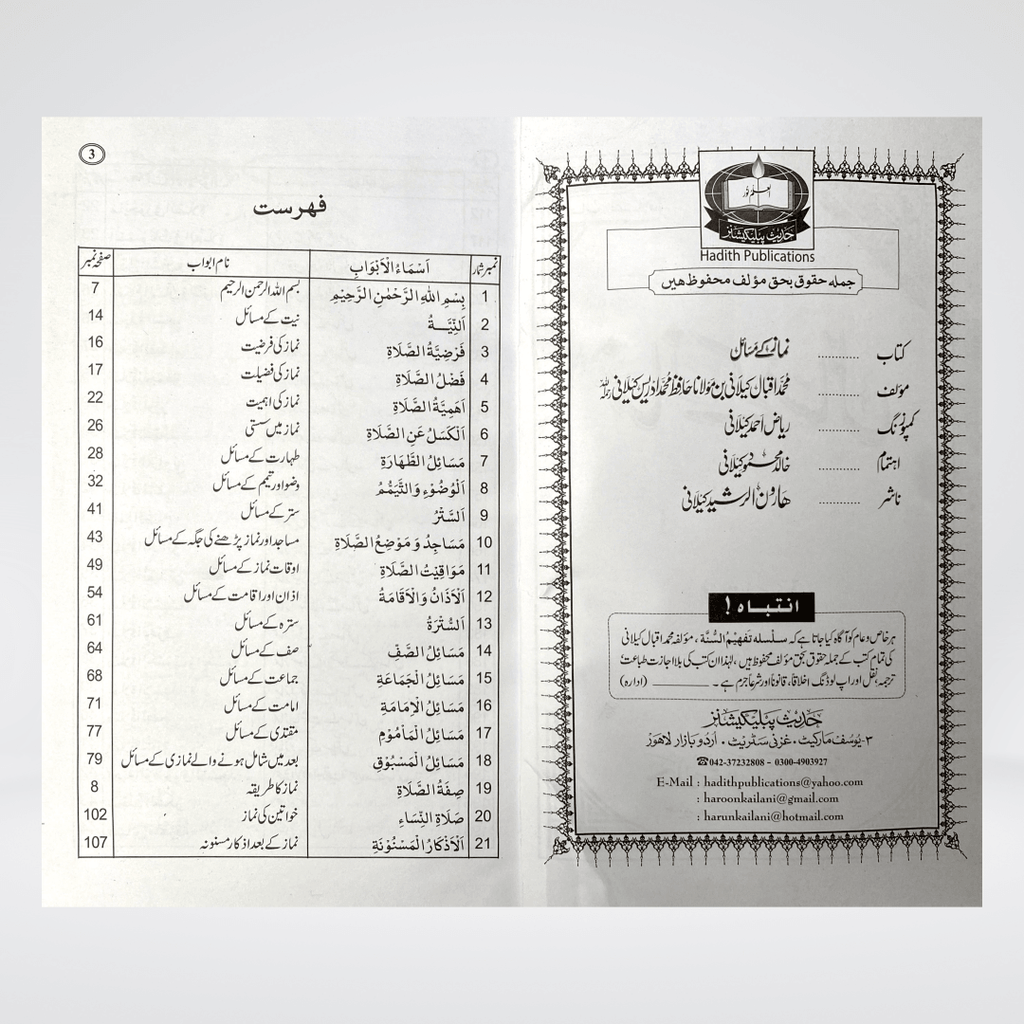 اِعلم نور
حدیث پبلیکیشنز
Hadith Publications
جملہ حقوق بحق مؤلف محفوظ ھیں
کتاب .......... نماز کے مسائل
مؤلف .......... محمد اقبال کیلانی بن مولانا حافظ محمد ادریس کیلانی رحمہ اللہ
کمپوزنگ .......... ریاض احمد کیلانی
اہتمام .......... خالد محمود کیلانی
ناشر .......... ھارون الرشید کیلانی
انتباہ !
ہر خاص و عام کو آگاہ کیا جاتا ہے کہ سلسلہ تفہیم السنۃ ، مؤلفہ محمد اقبال کیلانی
کی تمام کتب کے جملہ حقوق بحق مؤلف محفوظ ہیں ، لہٰذا ان کتب کی بلا اجازت طباعت ،
ترجمہ ، نقل اور اپ لوڈنگ اخلاقاً، قانوناً اور شرعاً جرم ہے ۔ ________ (ادارہ)
حدیث پبلیکیشنز
۳- یوسف مارکیٹ ، غزنی سٹریٹ ، اردو بازار لاھور
☎042-37232808 - 0300-4903927
E-Mail : hadithpublications@yahoo.com
: haroonkailani@gmail.com
: harunkailani@hotmail.com
3
فهرست
نمبر شمار اَسْمَاءُ الْاَبْوَابِ نام ابواب صفحہ نمبر
1 بِسْمِ اللّٰهِ الرَّحْمٰنِ الرَّحِيْمِ بسم اللہ الرحمن الرحیم 7
2 اَلنِّيَّــةُ نیت کے مسائل 14
3 فَرْضِيَّةُ الصَّلَاةِ نماز کی فرضیت 16
4 فَضْلُ الصَّلَاةِ نماز کی فضیلت 17
5 اَهَمِيَّةُ الصَّلَاةِ نماز کی اہمیت 22
6 اَلْكَسَلُ عَنِ الصَّلَاةِ نماز میں سستی 26
7 مَسَائِلُ الطَّهَارَةِ طہارت کے مسائل 28
8 اَلْوُضُوْءِ وَالتَّيَمُّمُ وضو اور تیمم کے مسائل 32
9 اَلسَّتْرُ ستر کے مسائل 41
10 مَسَاجِدُ وَ مَوْضِعُ الصَّلَاةِ مساجد اور نماز پڑھنے کی جگہ کے مسائل 43
11 مَوَاقِيْتُ الصَّلَاةِ اوقات نماز کے مسائل 49
12 اَلْاَذَانُ وَالْاَقَامَةُ اذان اور اقامت کے مسائل 54
13 اَلسُّتْرَةُ سترہ کے مسائل 61
14 مَسَائِلُ الصَّفِّ صف کے مسائل 64
15 مَسَائِلُ الْجَمَاعَةِ جماعت کے مسائل 68
16 مَسَائِلُ الْاِمَامَةِ امامت کے مسائل 71
17 مَسَائِلُ الْمَاْمُوْمِ مقتدی کے مسائل 77
18 مَسَائِلُ الْمَسْبُوْقِ بعد میں شامل ہونے والے نمازی کے مسائل 79
19 صِفَةُ الصَّلَاةِ نماز کا طریقہ 8
20 صَلَاةِ النِّسَاءِ خواتین کی نماز 102
21 اَلْاَذْكَارُ الْمَسْنُوْنَةِ نماز کے بعد اذکار مسنونہ 107